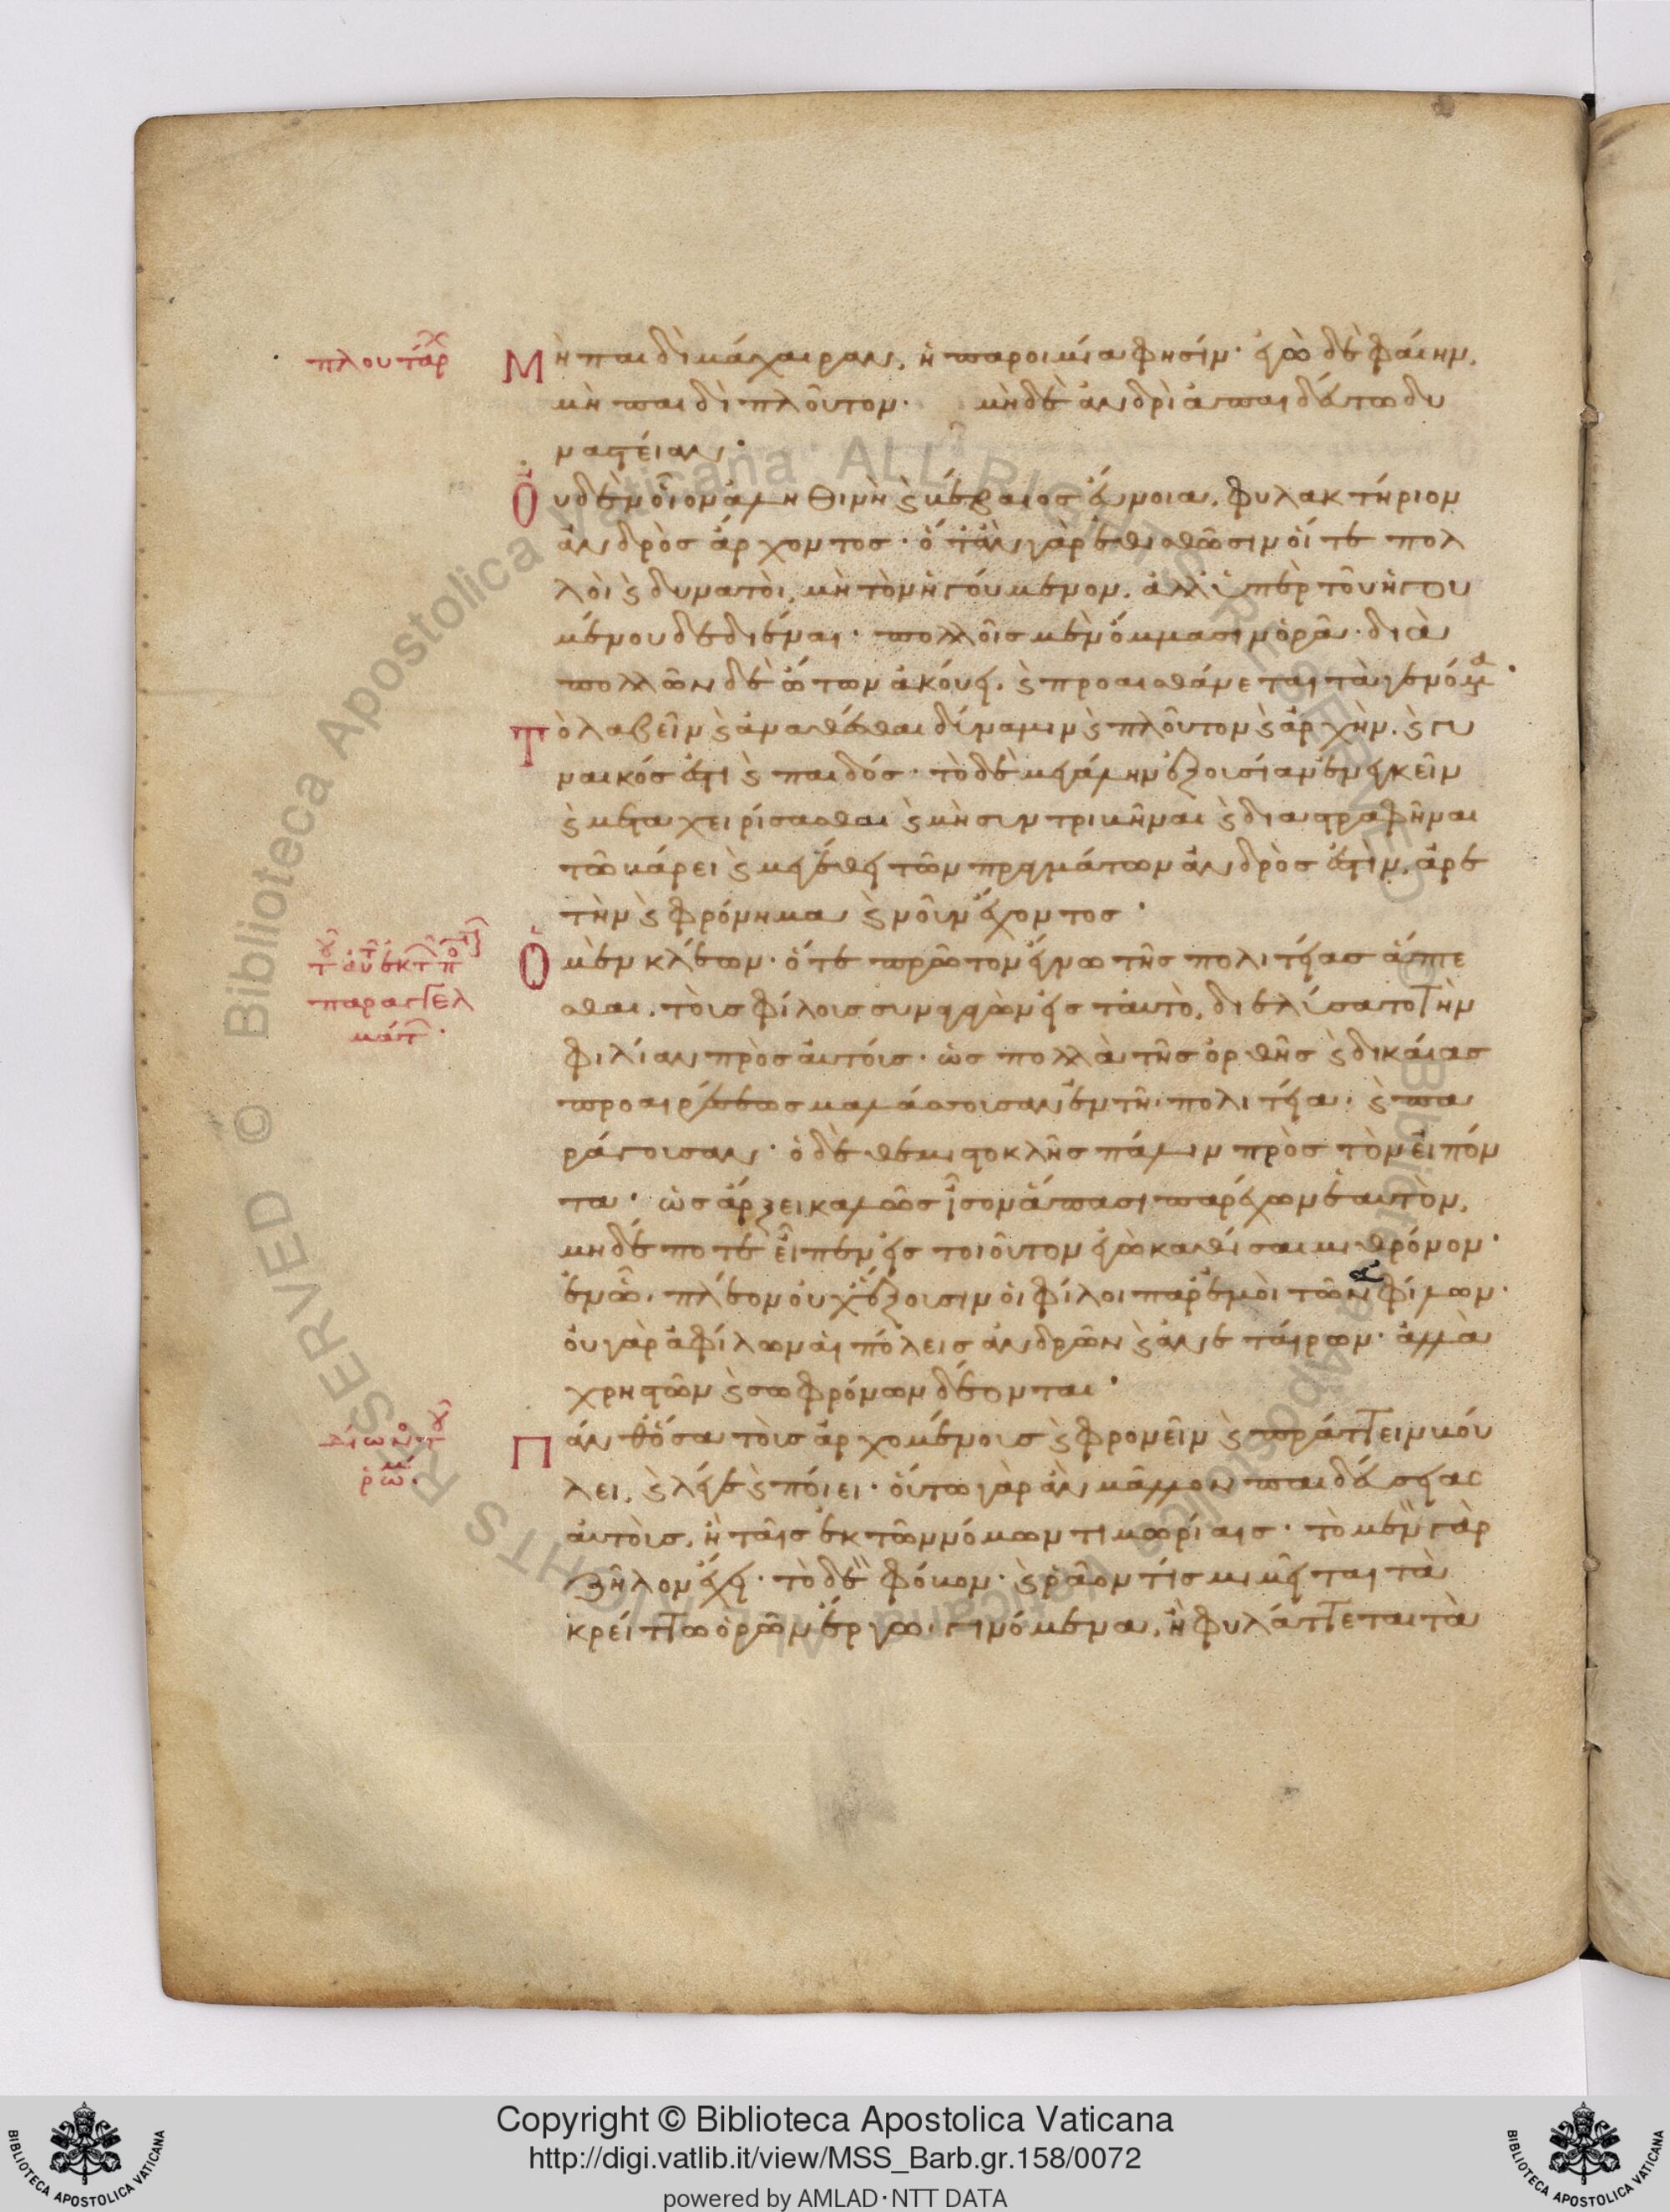 πλουτάρχ
Μὴ παιδὶ μάχαιραν, ἡ παροιμία φησίν· ἐγὼ δὲ φαίην,
μὴ παιδὶ πλοῦτον· μηδὲ ἀνδρὶ ἀπαιδεύτω δυ
ναστείαν·
Οὐδὲν οἷον ἀληθινὴ καὶ βέβαιος εὔνοια, φυλακτήριον
ἀνδρὸς ἄρχοντος· ὅταν γὰρ ἐθισθῶσιν οἵ τε πολ
λοὶ καὶ δυνατοὶ, μὴ τὸν ἡγούμενον, ἀλλ' ὑπὲρ τοῦ ἡγου
μένου δεδιέναι· πολλοῖς μὲν ὄμμασιν ὁρᾶ· διὰ
πολλῶν δὲ ὤτων ἀκούει, καὶ προαισθάνεται τὰ γενόμενα·
Τὸ λαβεῖν καὶ ἀναθέσθαι δύναμιν καὶ πλοῦτον καὶ ἀρχὴν, καὶ γυ
ναικός ἐστι καὶ παιδός· τὸ δὲ μεγάλην ἐξουσίαν ἐνεγκεῖν
καὶ μεταχειρίσασθαι καὶ μὴ συντριβῆναι καὶ διαστραφῆναι
τῶ βάρει καὶ μεγέθει τῶν πραγμάτων ἀνδρὸς ἐστὶν, ἀρε
τὴν καὶ φρόνημα καὶ νοῦν ἔχοντος·
τοῦ αὐτ ἐκ τ πολιτ
παραγγελ
μάτ·
Ὁ μὲν κλέων· ὅτε πρῶτον ἔγνω τῆς πολιτείας ἅπτε
σθαι, τοὺς φίλους συναγαγὼν εἰς ταυτὸ, διελύσατο τὴν
φιλίαν πρὸς αὐτούς· ὡς πολλὰ τῆς ὀρθῆς καὶ δικαίας
προαιρέσεως μαλάσσουσαν ἐν τῆ πολιτεία· καὶ πα
ράγουσαν· ὁ δὲ θεμιστοκλῆς πάλιν πρὸς τὸν εἰπόν
τα· ὡς ἄρξει καλῶς ἴσον ἅπασι παρέχων ἑαυτὸν,
μηδέποτε εἶπεν εἰς τοιοῦτον ἐγὼ καθίσαιμι θρόνον·
ἐν ᾧ, πλέον οὐχ ἕξουσιν οἱ φίλοι παρ' ἐμοὶ τῶν ἀφίλων·
οὐ γὰρ ἀφίλων αἱ πόλεις ἀνδρῶν καὶ ἀνεταίρων· ἀλλὰ
χρηστῶν καὶ σωφρόνων δέονται·
δίωνος τοῦ
ῥωμ·
Πάνθ' ὅσα τοὺς ἀρχομένους καὶ φρονεῖν καὶ πράττειν βού
λει, καὶ λέγε καὶ ποίει· οὕτω γὰρ ἂν μᾶλλον παιδεύσειας
αὐτοὺς, ἢ ταῖς ἐκ τῶν νόμων τιμωρίαις· τὸ μὲν γὰρ
ζῆλον ἔχει· τὸ δὲ φόβον· καὶ ῥᾶον τίς μιμεῖται τὰ
κρείττω ὁρῶν ἔργω γινόμενα, ἢ φυλάττεται τὰ
Copyright © Biblioteca Apostolica Vaticana
http://digi.vatlib.it/view/MSS_Barb.gr.158/0072
powered by AMLAD·NTT DATA